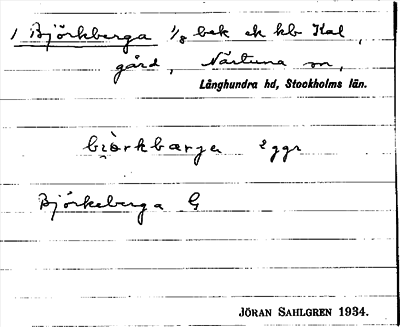 1 Björkberga 1/8 bek ek kb Kal,
gård, Närtuna sn,
Långhundra hd, Stockholms län.
bi̯òrkbærja 2 ggr
Björkeberga G
JÖRAN SAHLGREN 1934.